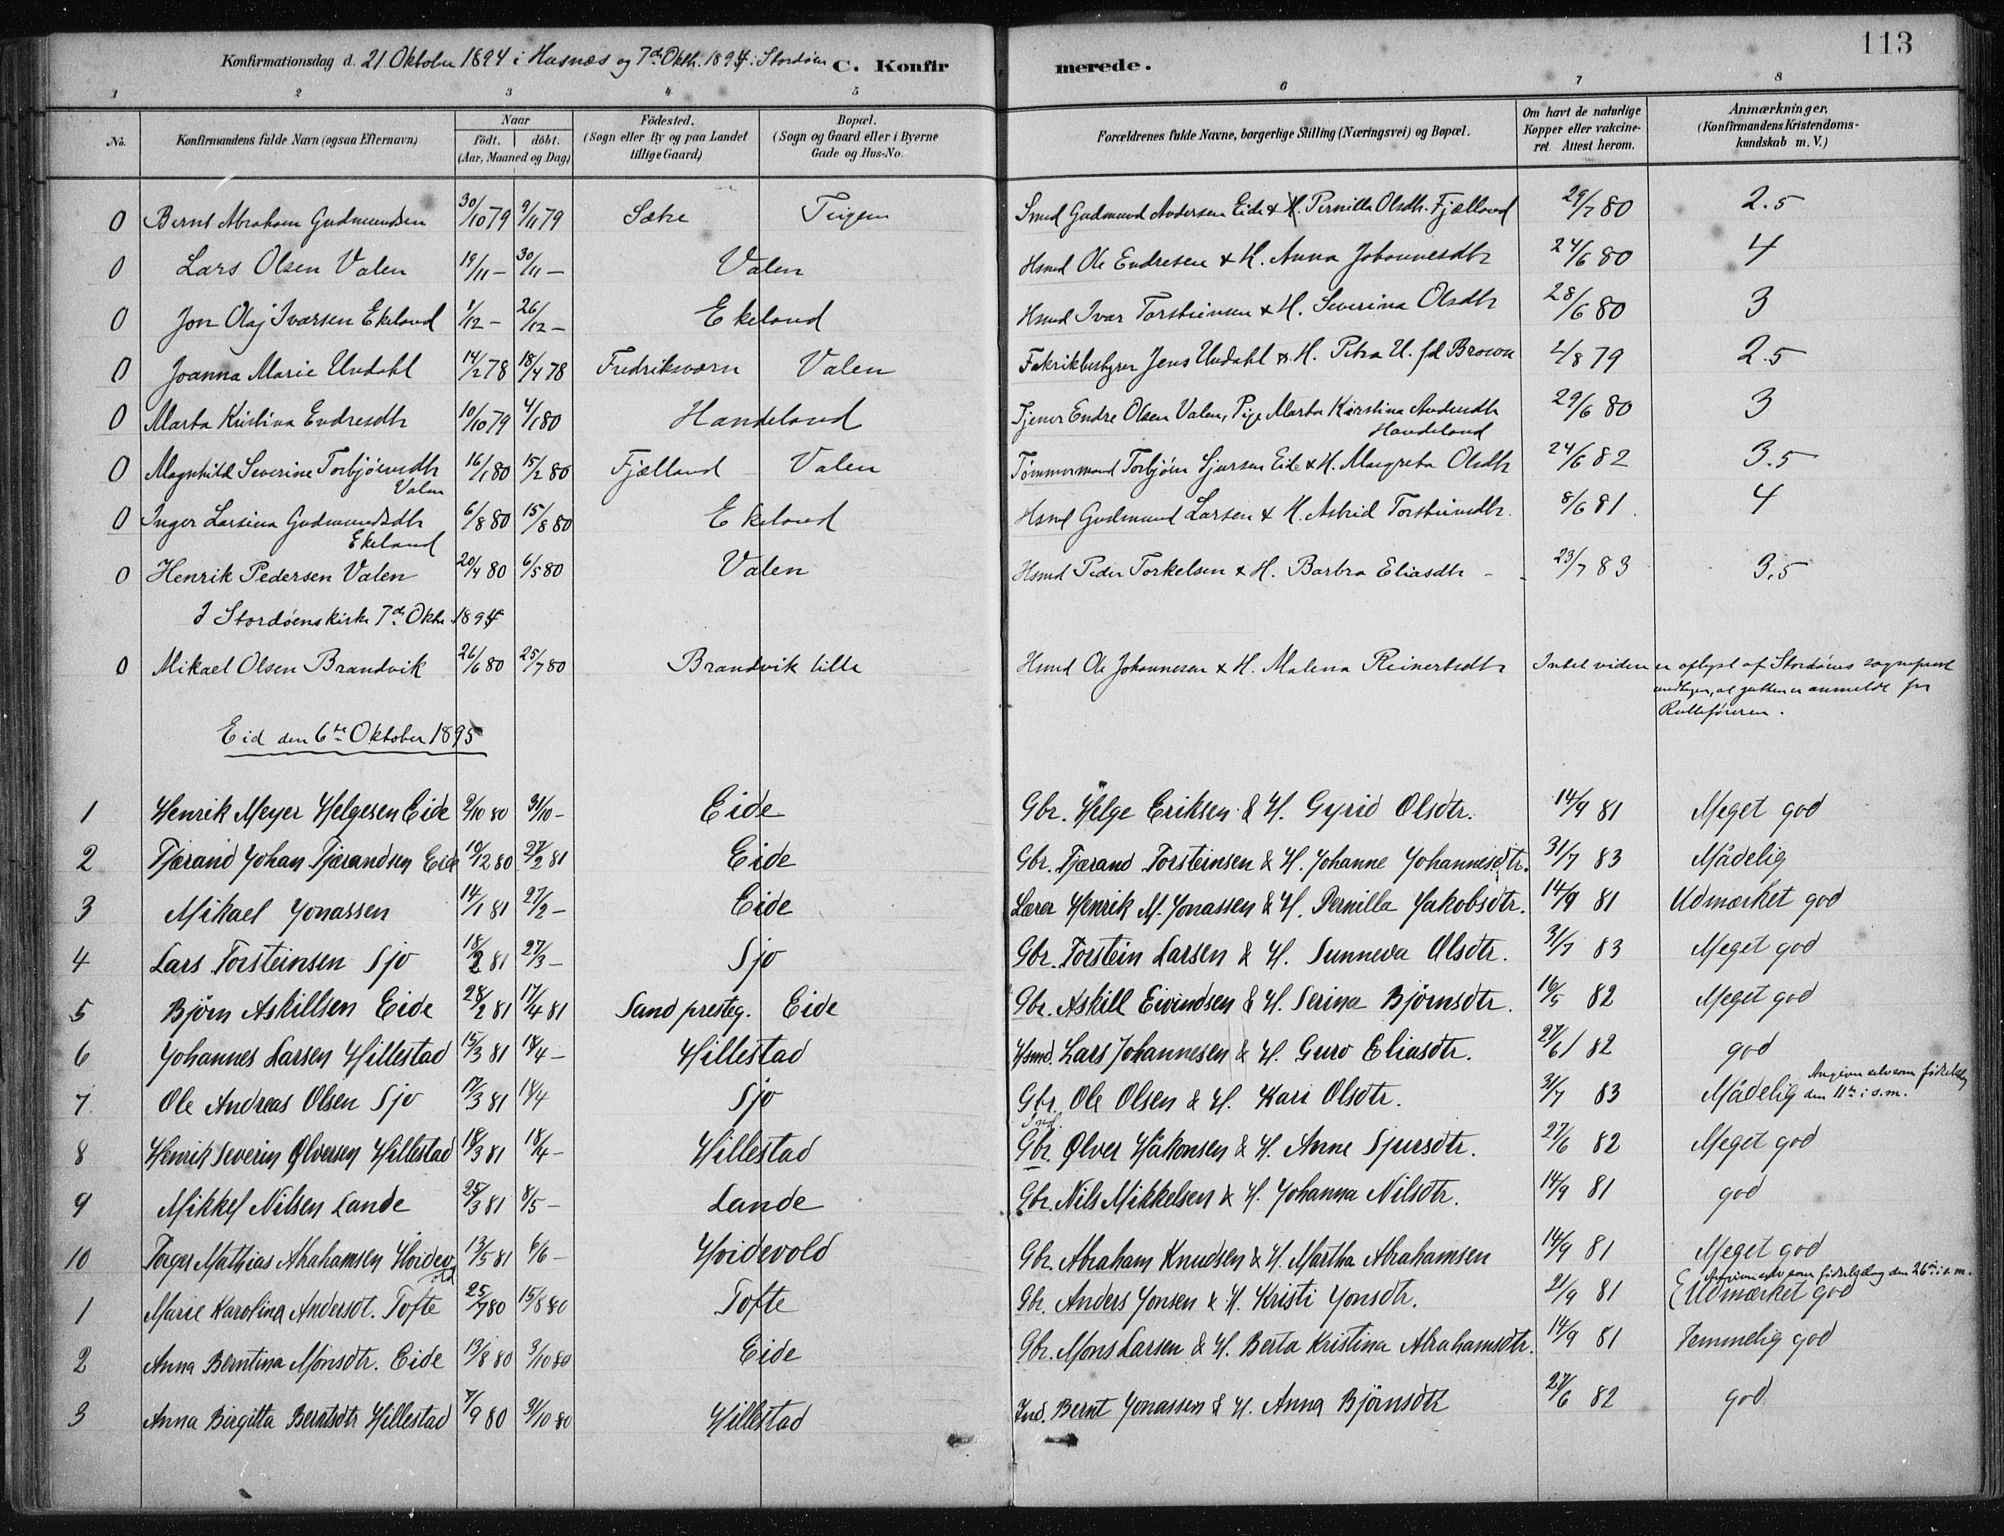 113
Konfirmationsdag d. 21 Oktober 1894 i Husnæs og 7de Oktb. 1894 i Stordøen C. Konfirmerede.
1 2 3 4 5 6 7 8
No. Konfirmandens fulde Navn (ogsaa Efternavn) Naar födt. döbt. (Aar, Maaned og Dag) Födested. (Sogn eller By og paa Landet tillige Gaard) Bopæl. (Sogn og Gaard eller i Byerne Gade og Hus-No. Forældrenes fulde Navne, borgerlige Stilling (Næringsvei) og Bopæl. Om havt de naturlige Kopper eller vakcineret. Attest herom. Anmærkninger, (Konfirmandens Kristendomskundskab m. V.)
0 Bernt Abraham Gudmundsen 30/10 79 9/11 79 Sætre Teigen Smed Gudmund Andersen Eide & H. Pernilla Olsdtr. Fjælland 29/7 80 2.5
0 Lars Olsen Valen 19/11 – 30/11 – Valen Hsmd Ole Endresen & H. Anna Johannesdtr 24/6 80 4
0 Jon Olaj Ivarsen Ekeland 1/12 – 26/12 – Ekeland Hsmd Ivar Torsteinsen & H. Severina Olsdtr 28/6 80 3
0 Joanna Marie Undahl 14/2 78 18/4 78 Fredriksværn Valen Fabrikbestyrer Jens Undahl & H. Petra U. fd Brown 2/8 79 2.5
0 Marta Kristina Endresdtr 10/10 79 4/1 80 Handeland Tjener Endre Olsen Valen, Pige Marta Kirstina Andersdtr Handeland 29/6 80 3
0 Magnhild Severine Torbjørnsdtr Valen 16/1 80 15/2 80 Fjælland Valen Tømmermand Torbjørn Sjursen Eide & H. Margreta Olsdtr 24/6 82 3.5
0 Inger Larsina Gudmundsdtr Ekeland 6/8 80 15/8 80 Ekeland Hsmd Gudmund Larsen & H. Astrid Torsteinsdtr. 8/6 81. 4
0 Henrik Pedersen Valen 20/4 80 6/5 80 Valen Hsmd Peder Torkelsen & H. Barbra Eliasdtr – 23/7 83 3,5
I Stordøens kirke 7de Oktbr 1894
0 Mikael Olsen Brandvik 26/6 80 25/7 80 Brandvik lille Hsmd Ole Johannesen & H. Malena Reinertsdtr Intet videre er oplyst af Stordøens sogneprest
undtagen, at gutten er anmeldt for
Rulleføreren.
Eid den 6te Oktober 1895
1 Henrik Meyer Helgesen Eide 2/10 80 31/10 – Eide Gbr. Helge Eriksen & H. Gyrid Olsdtr. 14/9 81 Meget god
2 Tjærand Johan Tjærandsen Eide 10/12 80 27/2 81 Eide Gbr. Tjærand Torsteinsen & H. Johanne Johannesdtr. 31/7 83 Mådelig
3 Mikael Jonassen 14/1 81 27/2 – Eide Lærer Henrik M. Jonassen & H. Pernilla Jakobsdtr. 14/9 81 Udmærket god
4 Lars Torsteinsen Sjo 18/2 81 27/3 – Sjo Gbr. Torstein Larsen & H. Sunneva Olsdtr. 31/7 83 Meget god
5 Bjørn Askillsen Eide 28/2 81 17/4 81 Sand presteg. Eide Gbr. Askill Eivindsen & H. Serina Bjørnsdtr. 16/5 82 Meget god
6 Johannes Larsen Hillestad 15/3 81 18/4 – Hillestad Hsmd. Lars Johannesen & H. Guro Eliasdtr. 27/6 82 god
7. Ole Andreas Olsen Sjo 17/3 81 18/4 Sjo Gbr. Ole Olsen & H. Kari Olsdtr. 31/7 83 Mådelig Angiver selv som fødselsdag den 11te i s.m.
8 Henrik Severin Ølversen Hillestad 18/3 81 18/4 – Hillestad Ind. Gbr. Ølver Håkonsen & H. Anne Sjursdtr. 27/6 82 Meget god
9 Mikkel Nilsen Lande 25/3 81 8/5 – Lande Gbr. Nils Mikkelsen & H. Johanna Nilsdtr. 14/9 81 god
10 Torger Mathias Abrahamsen Hoidevold 13/5 81 6/6 – Hoidevold Gbr. Abraham Knudsen & H. Martha Abrahamsen 14/9 81 Meget god
1 Marie Karolina Andersdt. Tofte 25/7 80 15/8 80 Tofte Gbr. Anders Jonsen & H. Kristi Jonsdtr. 2/9 81 Udmærket god Angiver selv som fødselsdag den 26te i s.m.
2 Anna Berntina Monsdtr. Eide 13/8 80 3/10 80 Eide Gbr. Mons Larsen & H. Berta Kristina Abrahamsdtr. 14/9 81 Temmelig god
3 Anna Birgitta Berntsdtr Hillestad 7/9 80 31/10 80 Hillestad Ind. Bernt Jonassen & H. Anna Bjørnsdtr 27/6 82 god